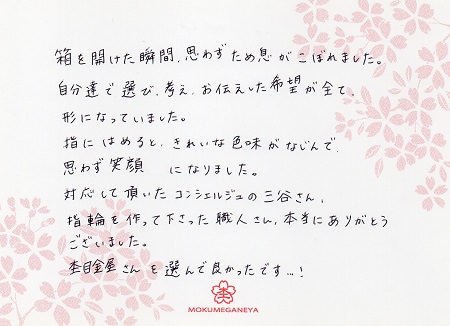 箱を開けた瞬間、思わずため息がこぼれました。
自分達で選び、考え、お伝えした希望が全て、
形になっていました。
指にはめると、きれいな色味がなじんで、
思わず笑顔 になりました。
対応して頂いたコンシェルジュの三谷さん、
指輪を作って下さった職人さん、本当にありがとう
ございました。
杢目金屋さんを選んで良かったです…!
MOKUMEGANEYA